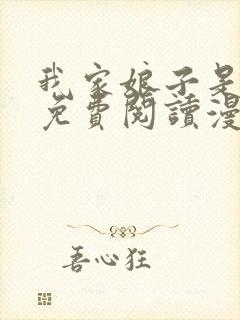 我家娘子是
免費閱讀漫
善心狂